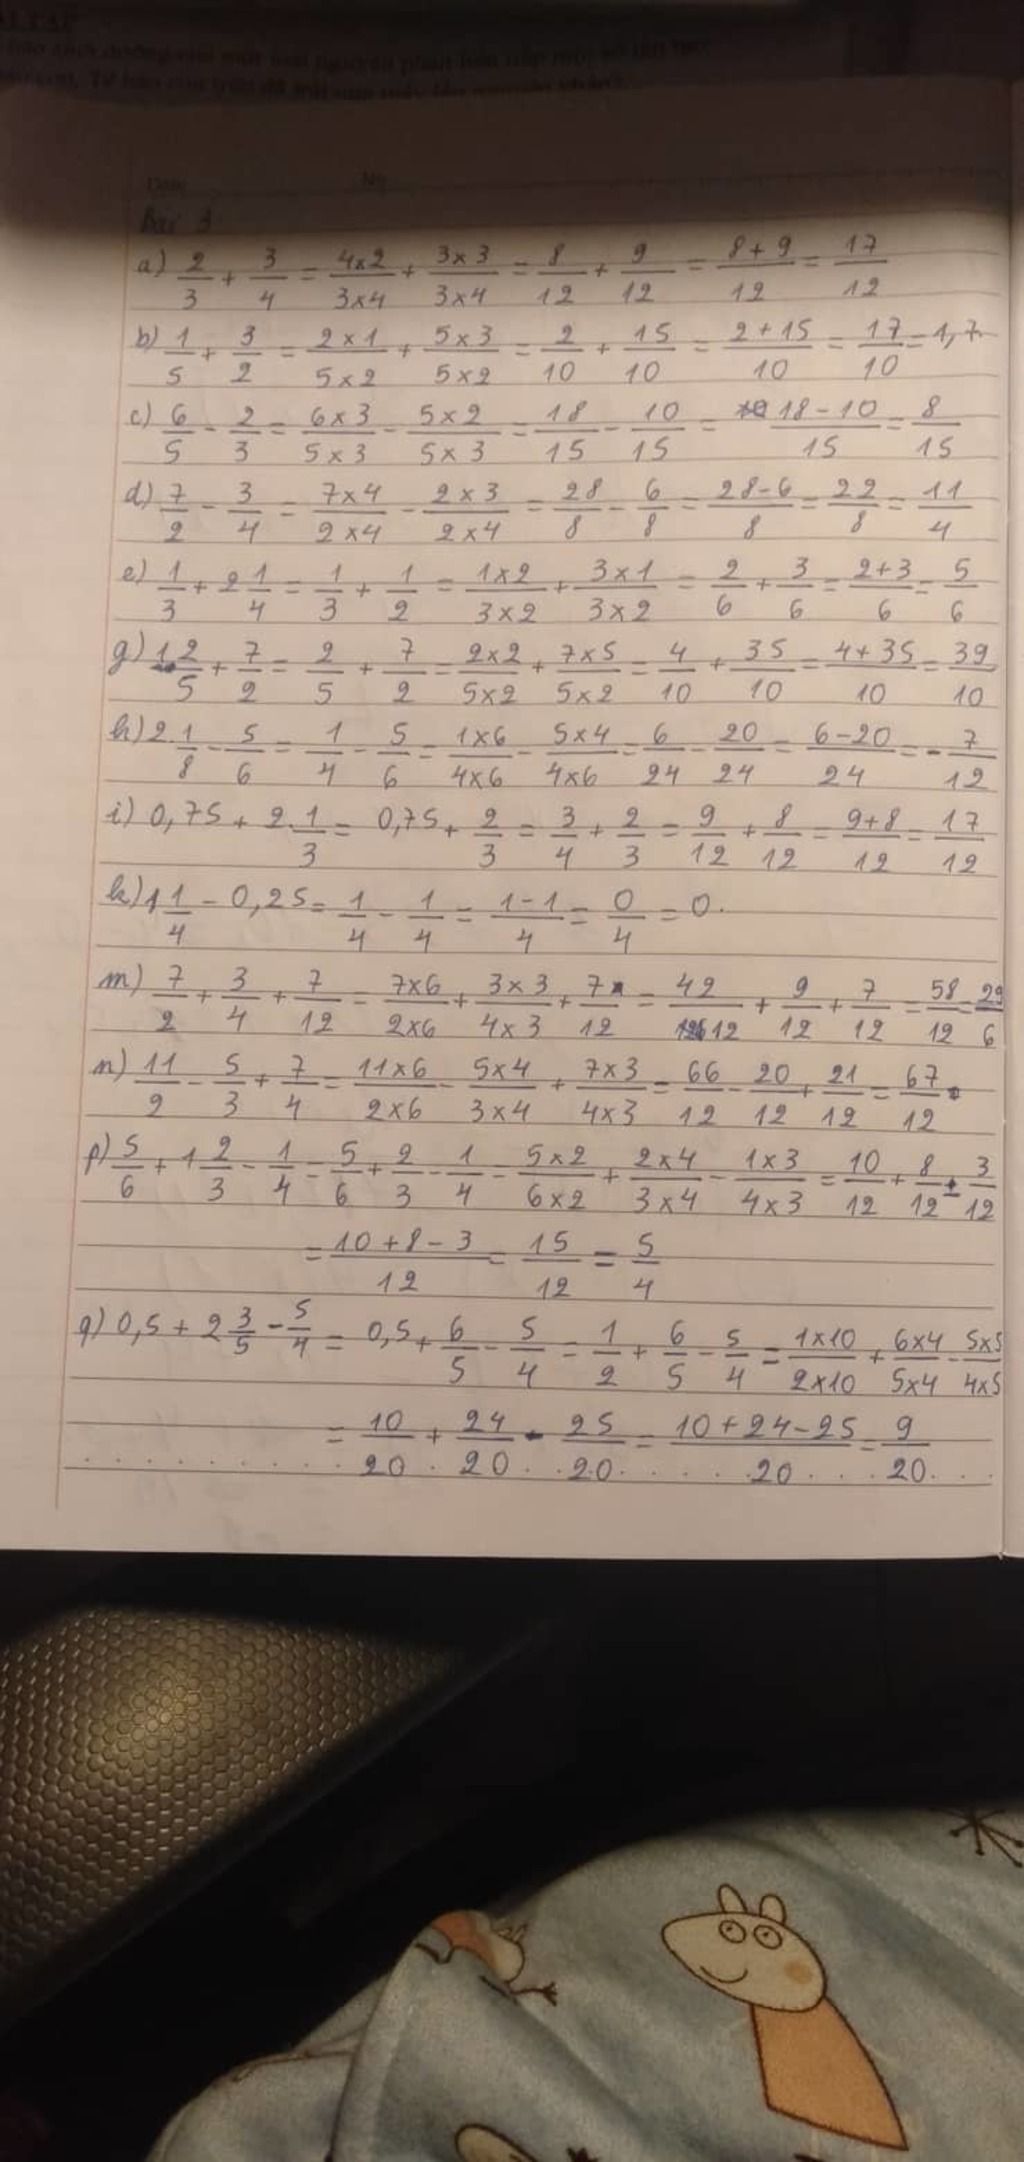 Bài 3
a) 2/3 + 3/4 = 4×2/3×4 + 3×3/3×4 = 8/12 + 9/12 = 8+9/12 = 17/12
b) 1/5 + 3/2 = 2×1/5×2 + 5×3/5×2 = 2/10 + 15/10 = 2+15/10 = 17/10 = 1,7.
c) 6/5 - 2/3 = 6×3/5×3 - 5×2/5×3 = 18/15 - 10/15 = 18-10/15 = 8/15
d) 7/2 - 3/4 = 7×4/2×4 - 2×3/2×4 = 28/8 - 6/8 = 28-6/8 = 22/8 = 11/4
e) 1/3 + 2 1/4 = 1/3 + 1/2 = 1×2/3×2 + 3×1/3×2 = 2/6 + 3/6 = 2+3/6 = 5/6
g) 1 2/5 + 7/2 = 2/5 + 7/2 = 2×2/5×2 + 7×5/5×2 = 4/10 + 35/10 = 4+35/10 = 39/10
h) 2 1/8 - 5/6 = 1/4 - 5/6 = 1×6/4×6 - 5×4/4×6 = 6/24 - 20/24 = 6-20/24 = -7/12
i) 0,75 + 2 1/3 = 0,75 + 2/3 = 3/4 + 2/3 = 9/12 + 8/12 = 9+8/12 = 17/12
k) 1 1/4 - 0,25 = 1/4 - 1/4 = 1-1/4 = 0/4 = 0.
m) 7/2 + 3/4 + 7/12 = 7×6/2×6 + 3×3/4×3 + 7/12 = 42/12 + 9/12 + 7/12 = 58/12 = 29/6
n) 11/2 - 5/3 + 7/4 = 11×6/2×6 - 5×4/3×4 + 7×3/4×3 = 66/12 - 20/12 + 21/12 = 67/12.
p) 5/6 + 1 2/3 - 1/4 = 5/6 + 2/3 - 1/4 = 5×2/6×2 + 2×4/3×4 - 1×3/4×3 = 10/12 + 8/12 - 3/12
= 10+8-3/12 = 15/12 = 5/4
q) 0,5 + 2 3/5 - 5/4 = 0,5 + 6/5 - 5/4 = 1/2 + 6/5 - 5/4 = 1×10/2×10 + 6×4/5×4 - 5×5/4×5
= 10/20 + 24/20 - 25/20 = 10+24-25/20 = 9/20.